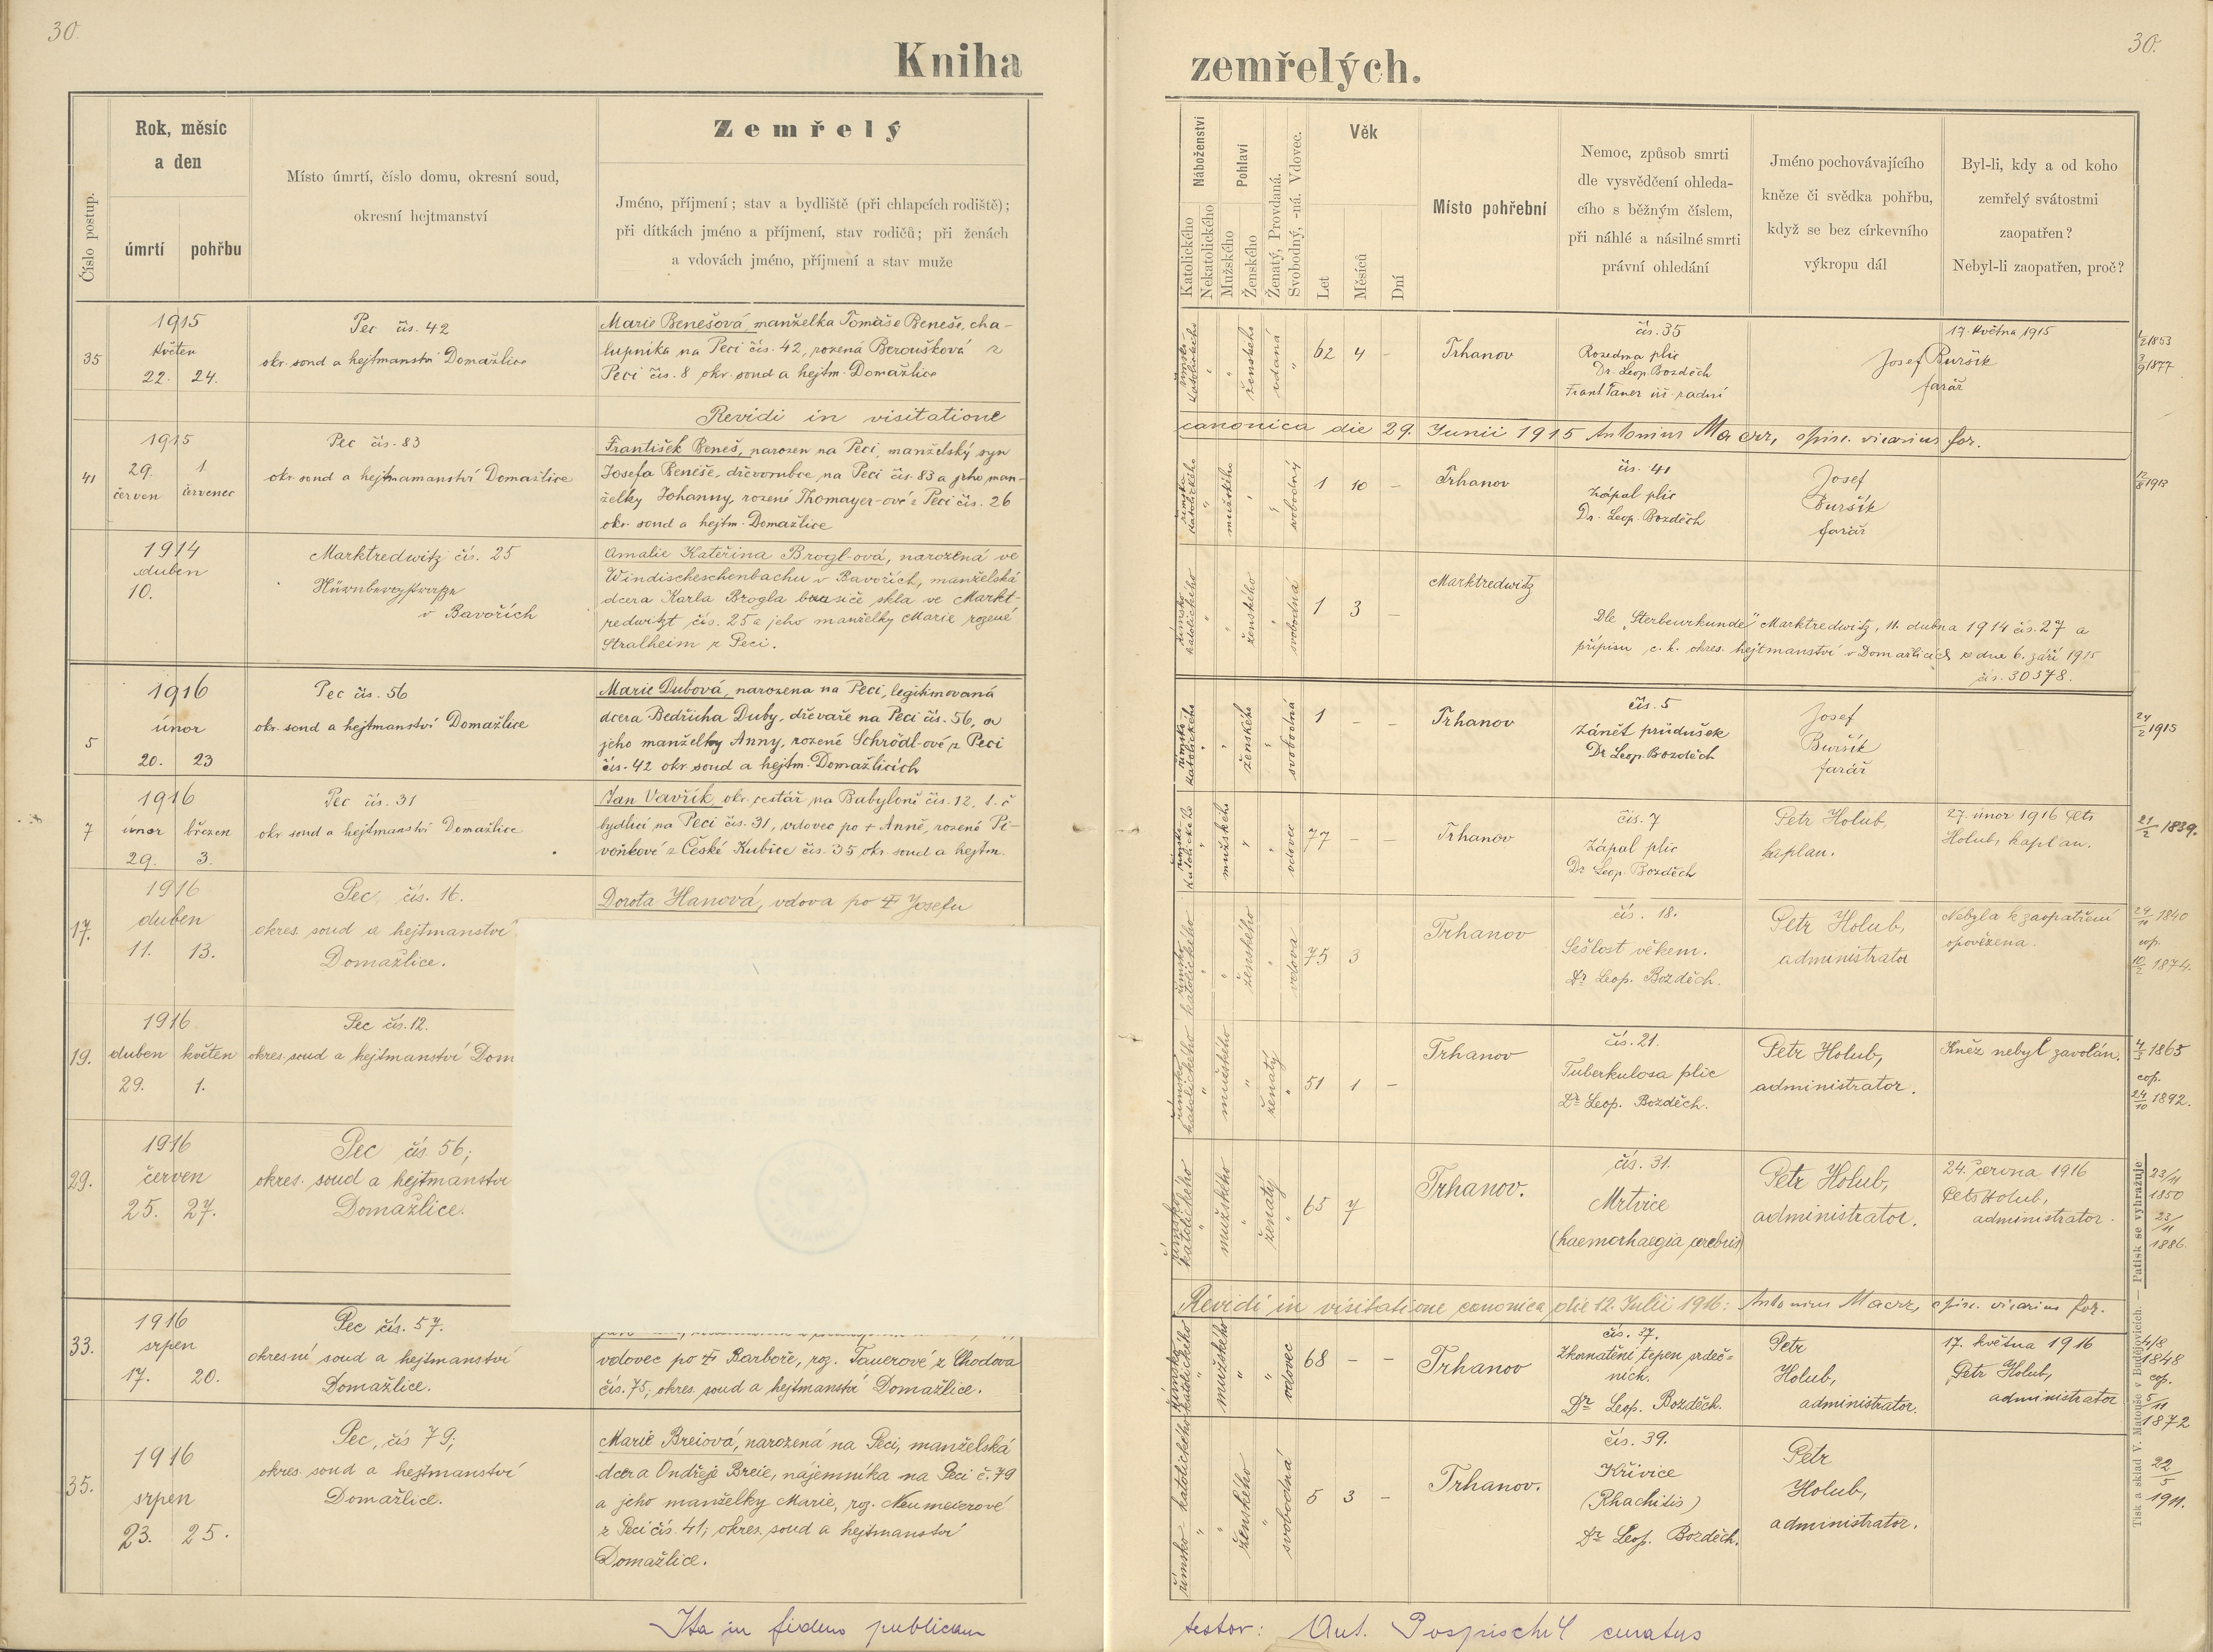 30.
Kniha
Číslo postup.
Rok, měsíc
a den
úmrtí
pohřbu
Místo úmrtí, číslo domu, okresní soud,
okresní hejtmanství
Zemřelý
Jméno, příjmení; stav a bydliště (při chlapcích rodiště);
při dítkách jméno a příjmení, stav rodičů; při ženách
a vdovách jméno, příjmení a stav muže
35
1915
květen
22. 24.
Pec čís. 42
okr. soud a hejtmanství Domažlice
Marie Benešová, manželka Tomáše Beneše, cha-
lupníka na Peci čís. 42, rozená Beroušková z
Peci čís. 8 okr. soud a hejtm. Domažlice
Revidi in visitatione
41
1915
29. 1.
červen červenec
Pec čís. 83
okr. soud a hejtmamanství Domažlice
František Beneš, narozen na Peci, manželský syn
Josefa Beneše, dřevorubce na Peci čís. 83 a jeho man-
želky Johanny, rozené Thomayer-ové z Peci čís. 26
okr. soud a hejtm. Domažlice
1914
duben
10.
Marktredwitz čís. 25
Nürnbergstraße
v Bavořích
Amalie Kateřina Brogl-ová, narozená ve
Windischeschenbachu v Bavořích, manželská
dcera Karla Brogla brusiče skla ve Markt-
redwitzt čís. 25 a jeho manželky Marie rozené
Stralheim z Peci.
5
1916
únor
20. 23
Pec čís. 56
okr. soud a hejtmanství Domažlice
Marie Dubová, narozena na Peci, legitimovaná
dcera Bedřicha Duby, dřevaře na Peci čís. 56, a
jeho manželky Anny, rozené Schrödl-ové z Peci
čís. 42 okr. soud a hejtm. Domažlicích
7
1916
únor březen
29. 3.
Pec čís. 31
okr. soud a hejtmanství Domažlice
Jan Vavřík, okr. cestář na Babyloně čís. 12, t. č
bydlící na Peci čís. 31, vdovec po + Anně, rozené Pi-
voňkové z České Kubice čís. 35 okr. soud a hejtm.
17.
1916
duben
11. 13.
Pec, čís. 16.
okres. soud a hejtmanství
Domažlice.
Dorota Hanová, vdova po + Josefu
19.
1916
duben květen
29. 1.
Pec čís. 12.
okres. soud a hejtmanství Dom
29.
1916
červen
25. 27.
Pec čís 56;
okres. soud a hejtmanství
Domažlice.
33.
1916
srpen
17. 20.
Pec čís. 57.
okresní soud a hejtmanství
Domažlice.
vdovec po + Barboře, roz. Tauerové z Chodova
čís. 75; okres. soud a hejtmanství Domažlice.
35.
1916
srpen
23. 25.
Pec, čís 79;
okres. soud a hejtmanství
Domažlice.
Marie Breiová, narozená na Peci, manželská
dcera Ondřeje Breie, nájemníka na Peci č. 79
a jeho manželky Marie, roz. Neumeierové
z Peci čís. 41; okres. soud a hejtmanství
Domažlice.
Ita in fidem publicam
30.
zemřelých.
Náboženství
Katolického
Nekatolického
Pohlaví
Mužského
Ženského
Ženatý, Provdaná.
Svobodný, -ná. Vdovec.
Věk
Let
Měsíců
Dní
Místo pohřební
Nemoc, způsob smrti
dle vysvědčení ohleda-
cího s běžným číslem,
při náhlé a násilné smrti
právní ohledání
Jméno pochovávajícího
kněze či svědka pohřbu,
když se bez církevního
výkropu dál
Byl-li, kdy a od koho
zemřelý svátostmi
zaopatřen?
Nebyl-li zaopatřen, proč?
římsko
katolického
ženského
vdaná
62 4 -
Trhanov
čís. 35
Rozedma plic
Dr. Leop. Bozděch
17. května 1915
Josef Buršík
farář
1/2 1853
3/9 1877
canonica die 29. Junii 1915 Antonius Maczr, episc. vicarius for.
římsko
katolického
mužského
svobodný
1 10 -
Trhanov
čís. 41
Zápal plic
Dr. Leop. Bozděch
Josef
Buršík
farář
12/8 1913
římsko
katolického
ženského
svobodná
1 3 -
Marktredwitz
Dle "Sterbeurkunde" Marktredwitz, 11. dubna 1914 čís. 27 a
přípisu c. k. okres. hejtmanství v Domažlicích ze dne 6. září 1915
čís. 30378.
římsko
katolického
ženského
svobodná
1 - -
Trhanov
čís. 5
Zánět průdušek
Dr Leop. Bozděch
Josef
Buršík
farář
24/2 1915
římsko
katolického
mužského
vdovec
77 - -
Trhanov
čís. 7
Zápal plic
Dr Leop. Bozděch
Petr Holub,
kaplan.
27. únor 1916 Petr
Holub, kaplan.
21/2 1839.
římsko
katolického
ženského
vdova
75 3
Trhanov
čís. 18.
Sešlost věkem.
Dr Leop. Bozděch.
Petr Holub,
administrator
Nebyla k zaopatření
opovězena.
24/11 1840
cop.
10/2 1874.
římsko
katolického
mužského
ženatý
51 1 -
Trhanov
čís. 21.
Tuberkulosa plic
Dr Leop. Bozděch.
Petr Holub,
administrator.
Kněz nebyl zavolán.
4/3 1865
cop.
24/10 1892.
římsko
katolického
mužského
ženatý
65 7
Trhanov.
čís. 31.
Mrtvice
(haemorhaegia cerebris)
Petr Holub,
administrator.
24. června 1916
Petr Holub,
administrator.
23/11
1850
23/11
1886.
Revidi in visitatione canonica die 12. Julii 1916: Antonius Macrz, episc. vicarius for.
římsko
katolického
mužského
vdovec
68 - -
Trhanov
čís. 37.
Zkornatění tepen srdeč-
ních.
Dr Leop. Bozděch.
Petr
Holub,
administrator.
17. května 1916
Petr Holub,
administrator
4/8
1848
cop.
5/11
1872
římsko katolického
ženského
svobodná
5 3 -
Trhanov.
čís. 39.
Křivice
(Rhachitis)
Dr Leop. Bozděch.
Petr
Holub,
administrator.
22/5
1911.
Tisk a sklad V. Matouše v Budějovicích. — Patisk se vyhražuje
testor: Ant. Pospischil curatus